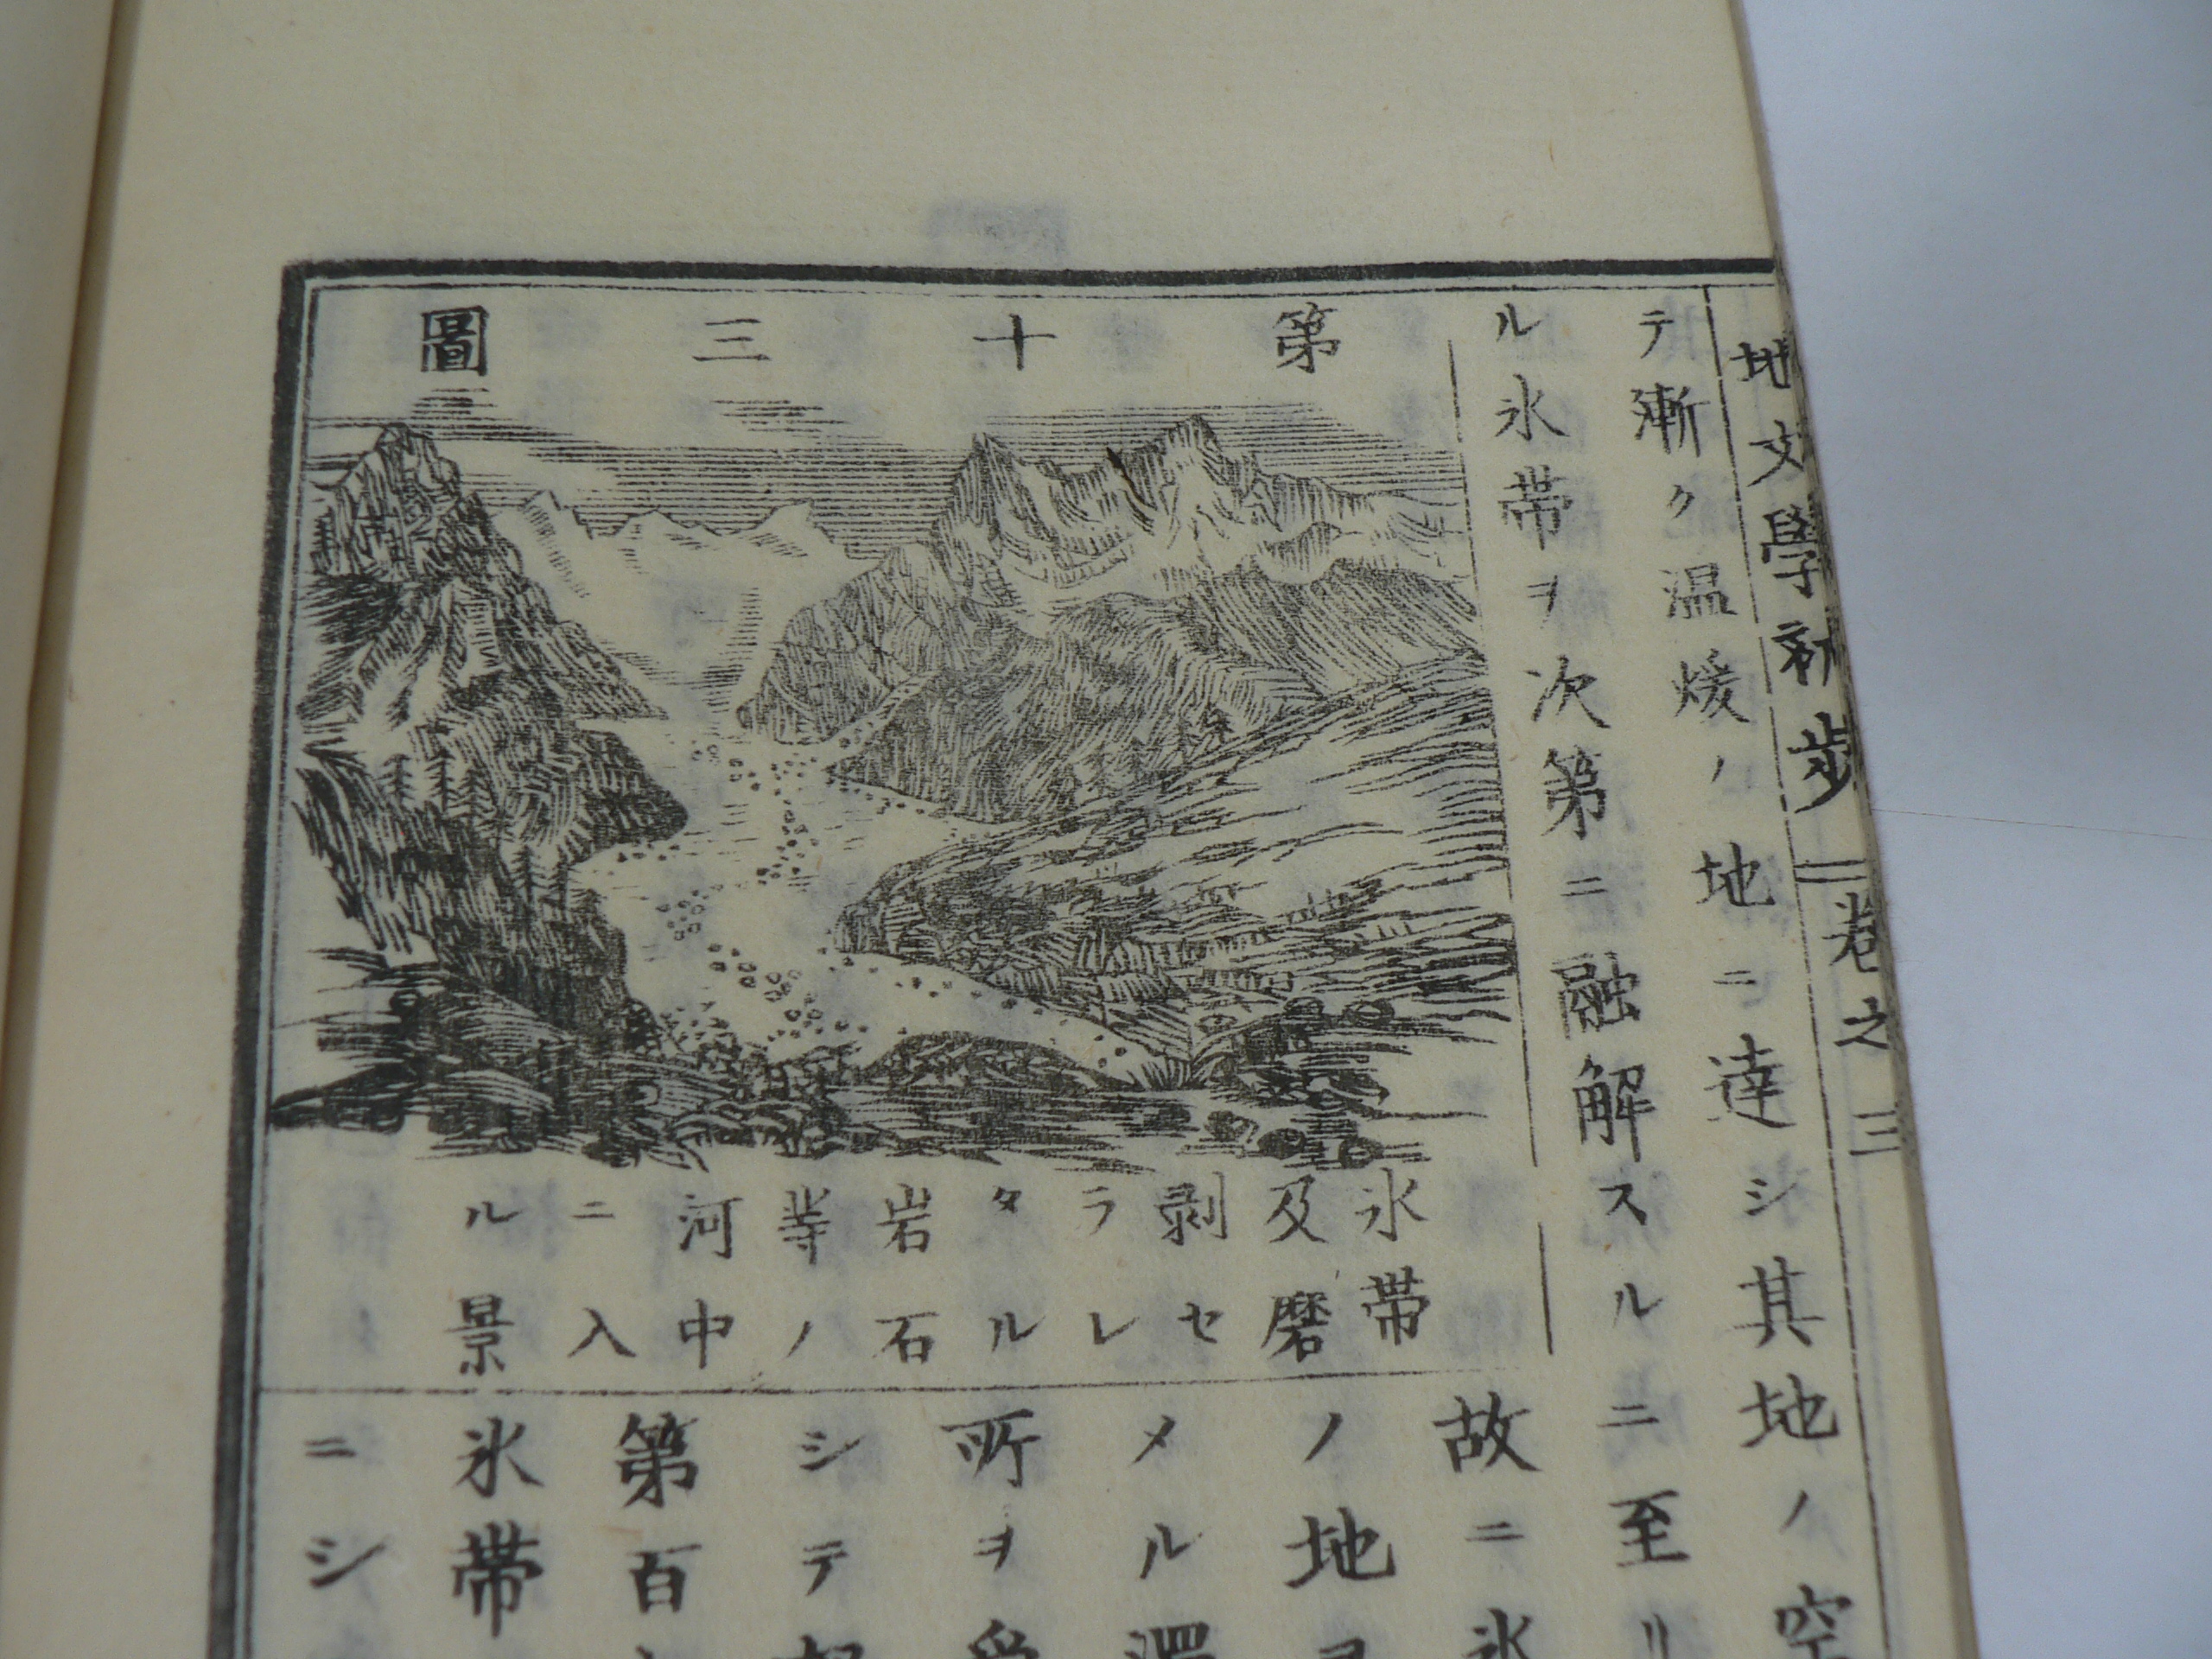 地文學初歩 卷之三
テ漸ク温煖ノ地ニ達シ其地ノ空
ル氷帯ヲ次第ニ融解スルニ至リ
第十三圖
氷帯
及磨
剥セ
ラレ
タル
岩石
等ノ
河中
ニ入
ル景
故ニ氷
ノ地
メル
所ヲ
シテ
第百
氷帯
ニシ